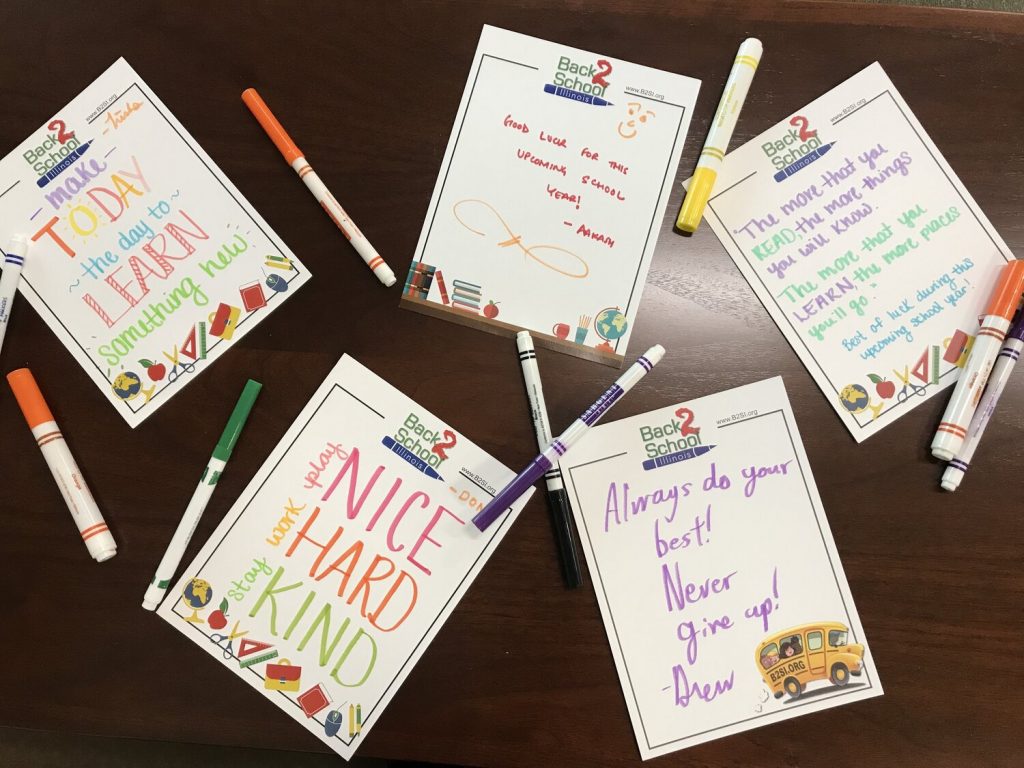 Back 2
School
Illinois
www.B2SI.org
-Trisha
- make -
TODAY
~ the day to ~
LEARN
something new
Back 2
School
Illinois
www.B2SI.org
GOOD LUCK FOR THIS
UPCOMING SCHOOL
YEAR!
- AAKASH
Back 2
School
Illinois
www.B2SI.org
"The more that you
READ, the more things
you will know.
The more that you
LEARN, the more places
you'll go."
Best of luck during this
upcoming school year!
Back 2
School
Illinois
www.B2SI.org
play
NICE
work
HARD
stay
KIND
Back 2
School
Illinois
www.B2SI.org
Always do your
best!
Never
give up!
-Drew
B2SI.ORG